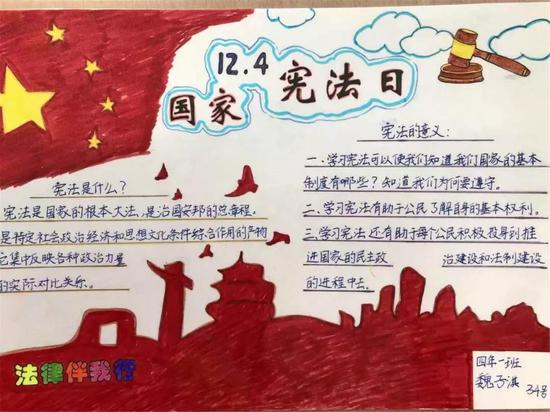 12.4
国家宪法日
宪法是什么？
宪法是国家的根本大法，是治国安邦的总章程，
是特定社会政治经济和思想文化条件综合作用的产物
它集中反映各种政治力量
的实际对比关系。
宪法的意义：
一、学习宪法可以使我们知道我们国家的基本
制度有哪些？知道我们为何要遵守。
二、学习宪法有助于公民了解自身的基本权利。
三、学习宪法还有助于每个公民积极投身到推
进国家的民主政治建设和法制建设
的进程中去。
法律伴我行
四年一班
魏子淇
34号